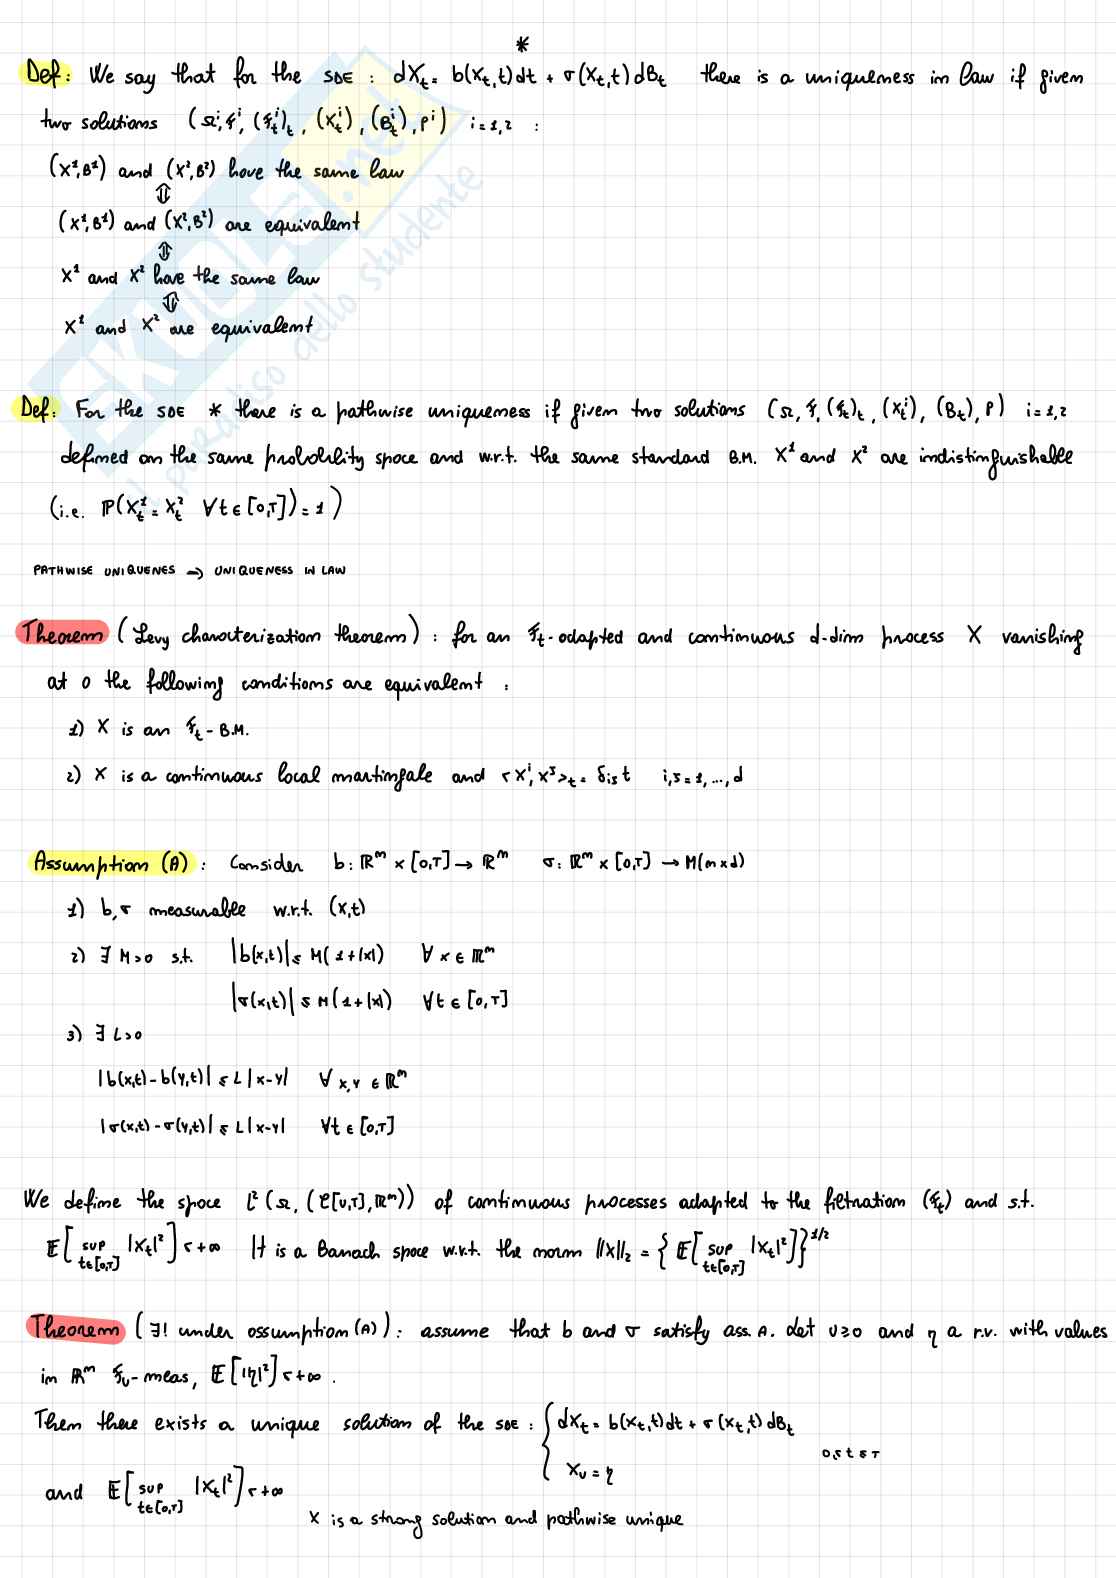 *
Def: We say that for the SDE : dX_t = b(X_t,t)dt + σ(X_t,t)dB_t there is a uniqueness in law if given
two solutions (Ω^i, F^i, (F_t^i)_t, (X_t^i), (B_t^i), P^i) i=1,2 :
(X^1,B^1) and (X^2,B^2) have the same law
⇕
(X^1,B^1) and (X^2,B^2) are equivalent
⇕
X^1 and X^2 have the same law
⇕
X^1 and X^2 are equivalent
Def: For the SDE * there is a pathwise uniqueness if given two solutions (Ω, F, (F_t)_t, (X_t^i), (B_t), P) i=1,2
defined on the same probability space and w.r.t. the same standard B.M. X^1 and X^2 are indistinguishable
(i.e. ℙ(X_t^1 = X_t^2 ∀t ∈ [0,T]) = 1)
PATHWISE UNIQUENES → UNIQUENESS IN LAW
Theorem (Levy characterization theorem): for an F_t-adapted and continuous d-dim process X vanishing
at 0 the following conditions are equivalent :
1) X is an F_t - B.M.
2) X is a continuous local martingale and <X^i, X^j>_t = δ_ij t i,j = 1, ..., d
Assumption (A) : Consider b: ℝ^m × [0,T] → ℝ^m σ: ℝ^m × [0,T] → M(m×d)
1) b,σ measurable w.r.t. (x,t)
2) ∃ M>0 s.t. |b(x,t)| ≤ M(1+|x|) ∀ x ∈ ℝ^m
|σ(x,t)| ≤ M(1+|x|) ∀t ∈ [0,T]
3) ∃ L>0
|b(x,t) - b(y,t)| ≤ L|x-y| ∀ x,y ∈ ℝ^m
|σ(x,t) - σ(y,t)| ≤ L|x-y| ∀t ∈ [0,T]
We define the space L^2(Ω, (C[u,T], ℝ^m)) of continuous processes adapted to the filtration (F_t) and s.t.
𝔼[sup_{t∈[0,T]} |X_t|^2] < +∞ It is a Banach space w.r.t. the norm ||X||_2 = {𝔼[sup_{t∈[0,T]} |X_t|^2]}^{1/2}
Theorem (∃! under assumption (A)): assume that b and σ satisfy ass. A. Let u≥0 and η a r.v. with values
in ℝ^m F_u-meas, 𝔼[|η|^2] < +∞.
Then there exists a unique solution of the SDE : { dX_t = b(X_t,t)dt + σ(X_t,t)dB_t
0≤t≤T
X_u = η
and 𝔼[sup_{t∈[0,T]} |X_t|^2] < +∞
X is a strong solution and pathwise unique
SKUOLA.net
il paradiso dello studente